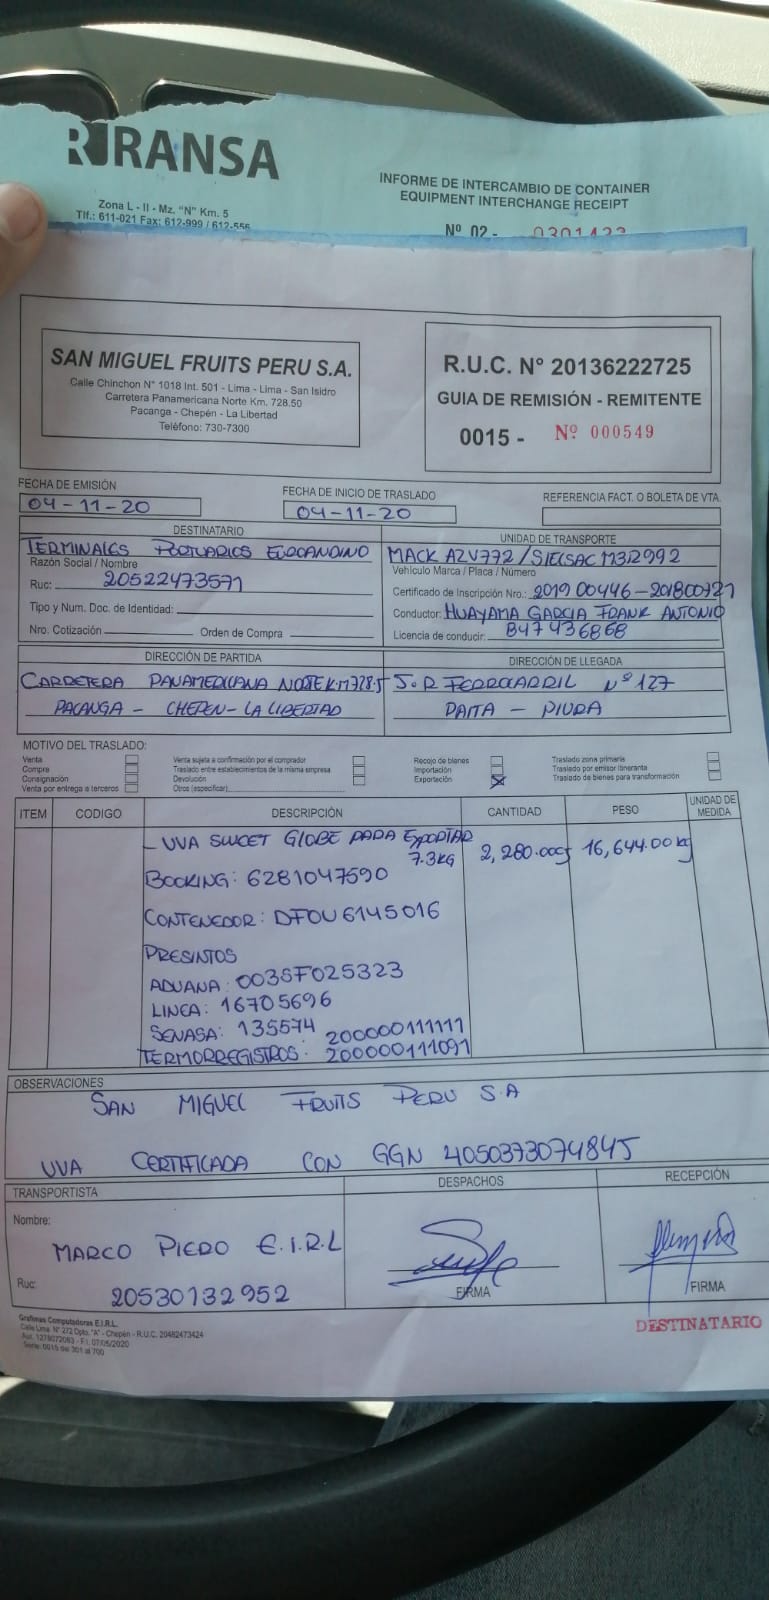 RANSA
INFORME DE INTERCAMBIO DE CONTAINER
EQUIPMENT INTERCHANGE RECEIPT
Zona L - II - Mz. "N" Km. 5
Tlf.: 611-021 Fax: 612-999 / 612-556
Nº 02- 0301423
SAN MIGUEL FRUITS PERU S.A.
Calle Chinchon N° 1018 Int. 501 - Lima - Lima - San Isidro
Carretera Panamericana Norte Km. 728.50
Pacanga - Chepén - La Libertad
Teléfono: 730-7300
R.U.C. N° 20136222725
GUIA DE REMISIÓN - REMITENTE
0015 - Nº 000549
FECHA DE EMISIÓN
04-11-20
FECHA DE INICIO DE TRASLADO
04-11-20
REFERENCIA FACT. O BOLETA DE VTA.
DESTINATARIO
TERMINALES PORTUARIOS EUROANDINO
Razón Social / Nombre
Ruc: 20522473571
Tipo y Num. Doc. de Identidad:
Nro. Cotización Orden de Compra
UNIDAD DE TRANSPORTE
MACK AZV772 / SIELSAC M3R992
Vehículo Marca / Placa / Número
Certificado de Inscripción Nro.: 201900446-201800721
Conductor: HUAYAMA GARCIA FRANK ANTONIO
Licencia de conducir: B47436868
DIRECCIÓN DE PARTIDA
CARRETERA PANAMERICANA NORTE K.M728.5
PACANGA - CHEPEN - LA LIBERTAD
DIRECCIÓN DE LLEGADA
J.R FERROCARRIL Nº 127
PAITA - PIURA
MOTIVO DEL TRASLADO:
Venta
Compra
Consignación
Venta por entrega a terceros
Venta sujeta a confirmación por el comprador
Traslado entre establecimientos de la misma empresa
Devolución
Otros (especificar)
Recojo de bienes
Importación
Exportación X
Traslado zona primaria
Traslado por emisor itinerante
Traslado de bienes para transformación
ITEM CODIGO DESCRIPCIÓN CANTIDAD PESO UNIDAD DE MEDIDA
- UVA SWEET GLOBE PARA EXPORTAR
7.3KG 2,280.00cj 16,644.00 kg
BOOKING: 6281047590
CONTENEDOR: DFOU6145016
PRESINTOS
ADUANA: 003SF025323
LINEA: 16705696
SENASA: 135574
TERMORREGISTROS: 200000111111
200000111091
OBSERVACIONES
SAN MIGUEL FRUITS PERU S.A
UVA CERTIFICADA CON GGN 4050373074845
TRANSPORTISTA
Nombre:
MARCO PIERO E.I.R.L
Ruc:
20530132952
DESPACHOS
FIRMA
RECEPCIÓN
FIRMA
Grafimas Computadoras E.I.R.L.
Calle Lima N° 272 Dpto. "A" - Chepén - R.U.C. 20482473424
Aut. 1279072083 - F.I. 07/05/2020
Serie: 0015 del 301 al 700
DESTINATARIO